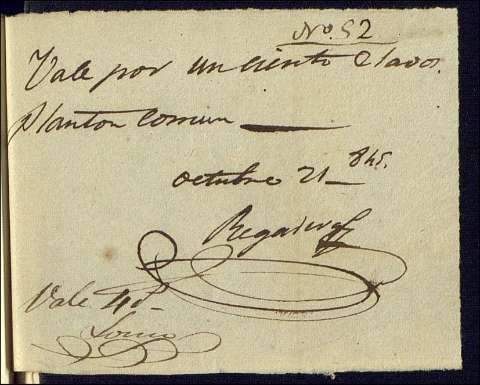 No. 52
Vale por un ciento Clavos.
planton Comun
octubre 21 845.
Vale